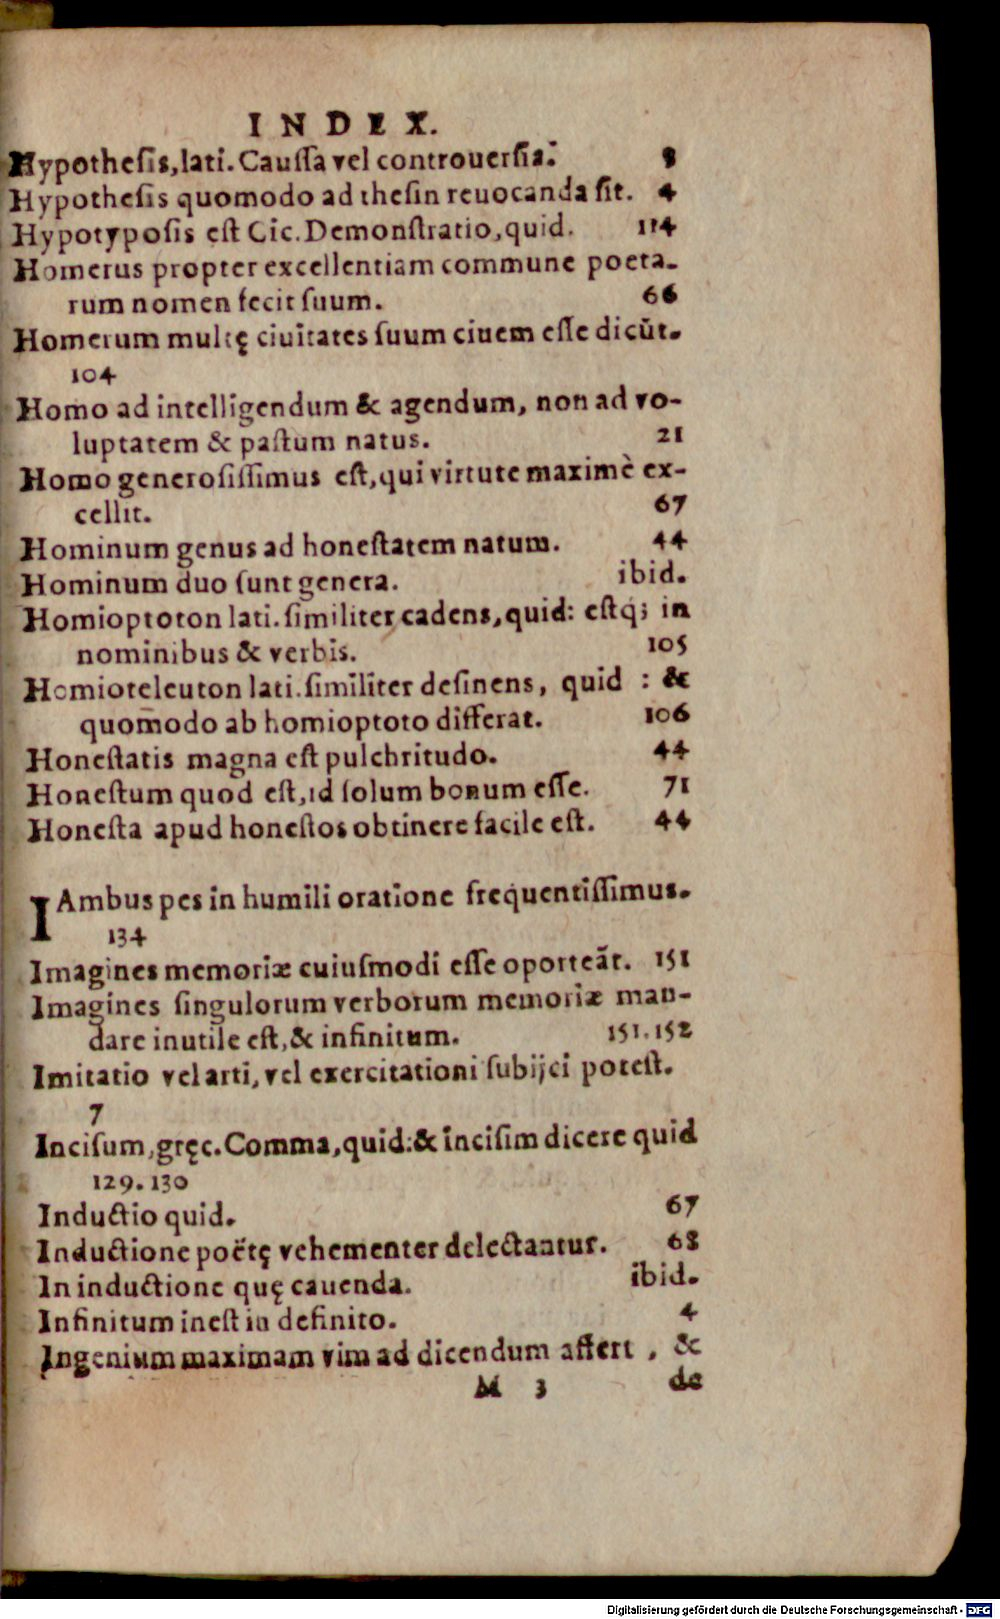 INDEX.
Hypothesis, lati. Caussa vel controuersia. 8
Hypothesis quomodo ad thesin reuocanda sit. 4
Hypotyposis est Cic. Demonstratio, quid. 114
Homerus propter excellentiam commune poeta-
rum nomen fecit suum. 66
Homerum multę ciuitates suum ciuem esse dicūt.
104
Homo ad intelligendum & agendum, non ad vo-
luptatem & pastum natus. 21
Homo generosissimus est, qui virtute maximè ex-
cellit. 67
Hominum genus ad honestatem natum. 44
Hominum duo sunt genera. ibid.
Homioptoton lati. similiter cadens, quid: estq; in
nominibus & verbis. 105
Homioteleuton lati. similiter desinens, quid : &
quomodo ab homioptoto differat. 106
Honestatis magna est pulchritudo. 44
Honestum quod est, id solum bonum esse. 71
Honesta apud honestos obtinere facile est. 44
IAmbus pes in humili oratione frequentissimus.
134
Imagines memoriæ cuiusmodi esse oporteāt. 151
Imagines singulorum verborum memoriæ man-
dare inutile est, & infinitum. 151.152
Imitatio vel arti, vel exercitationi subijci potest.
7
Incisum, gręc. Comma, quid: & incisim dicere quid
129.130
Inductio quid. 67
Inductione poëtę vehementer delectantur. 68
In inductione quę cauenda. ibid.
Infinitum inest in definito. 4
Ingenium maximam vim ad dicendum affert , &
M 3 de
Digitalisierung gefördert durch die Deutsche Forschungsgemeinschaft - DFG